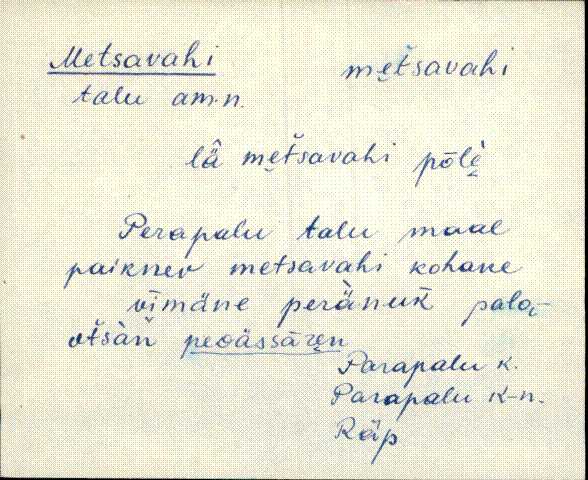 Metsavahi metšavahi
talu am.n.
lǟ me̬tšavahi põlè̬
Perapalu talu maal
paiknev metsavahi kohane
vīmäne peränuk̄ palo-
otšàǹ peoässāre̬n
Parapalu k.
Parapalu k-n.
Räp